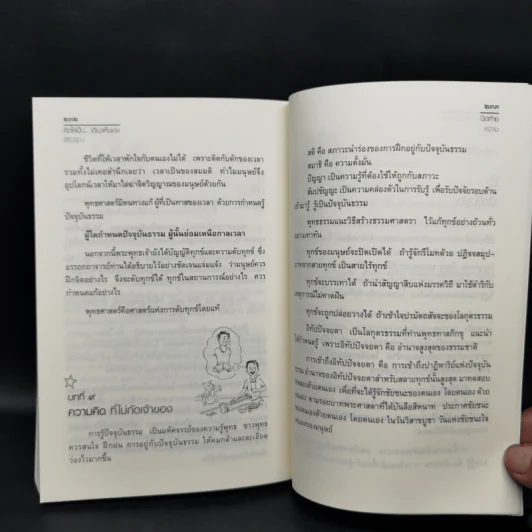 ๒๓๒
ชีวิตที่ให้เวลาพักใจกับตนเองไม่ได้ เพราะติดกับดักของเวลา
รวมทั้งไม่เคยสำนึกเลยว่า เวลาเป็นของสมมติ ทำไมมนุษย์จึง
อุปโลกน์เวลาให้มาไล่ล่าจิตวิญญาณของมนุษย์ด้วยกัน
พุทธศาสตร์มีหนทางแก้ ผู้ที่เป็นทาสของเวลา ด้วยการกำหนดรู้
ปัจจุบันธรรม
ผู้ใดกำหนดปัจจุบันธรรม ผู้นั้นย่อมเหนือกาลเวลา
นอกจากนี้พระพุทธเจ้ายังได้บัญญัติทุกข์และความดับทุกข์ ซึ่ง
อรรถกถาจารย์ท่านได้อธิบายไว้อย่างชัดเจนแจ่มแจ้ง ว่ามนุษย์ควร
ฝึกจิตอย่างไร จึงจะดับทุกข์ได้ ทุกข์ในสถานการณ์อย่างไร ควร
กำหนดแก้อย่างไร
พุทธศาสตร์คือศาสตร์แห่งการดับทุกข์โดยแท้
บทที่ ๙
ความคิด ที่ไม่กัดเจ้าของ
การรู้ปัจจุบันธรรม เป็นมหัศจรรย์ของความรู้พุทธ ชาวพุทธ
ควรสนใจ ฝึกฝน การอยู่กับปัจจุบันธรรม ให้คมกล้าและละเอียด
ว่องไวมากขึ้น
๒๓๓
ความ
สติ คือ สภาวะนำร่องของการฝึกอยู่กับปัจจุบันธรรม
สมาธิ คือ ความตั้งมั่น
ปัญญา เป็นความรู้ที่ต้องใช้ให้ถูกกับสภาวะ
สัมปชัญญะ เป็นความคล่องตัวในการรับรู้ เพื่อรับปัจจัยรอบด้าน
รู้เป็นปัจจุบันธรรม
พุทธธรรมแนะวิธีสร้างธรรมศาสตรา ไว้แก้ทุกข์อย่างถ้วนทั่ว
เท่ากัน
ทุกข์ของมนุษย์จะปิดเปิดได้ ถ้ารู้จักรีโมทด้วย ปฏิจจสมุป-
สายทุกข์ เป็นสายไร้ทุกข์
ทุกข์จะบรรเทาได้ ถ้านำสัญญาสิบแห่งมรรควิธี มาใช้ดำริกับ
เหตุการณ์ไม่คาดฝัน
ทุกข์จะถูกปล่อยวางได้ ถ้าเข้าใจปรมัตถสัจจะของโลกุตรธรรม
อิทัปปัจจยตา เป็นโลกุตรธรรมที่ท่านพุทธทาสภิกขุ แนะนำ
ให้กำหนดรู้ เพราะอิทัปปัจจยตา คือ อำนาจสูงสุดของธรรมชาติ
การเข้าถึงอิทัปปัจจยตา คือ การเข้าถึงปาฏิหาริย์แห่งปัจจุบัน
ธรรม อำนาจของอิทัปปัจจยตาสำหรับสลายทุกข์นั้นสูงสุด มาทดสอบ
ด้วยตนเอง เพื่อที่จะได้รู้จักชัยชนะของตนเอง โดยตนเอง ด้วย
ตนเอง ตามรอยบาทพระศาสดาที่ได้บันลือสีหนาท ประกาศชัยชนะ
ตนเองด้วยตนเอง โดยตนเอง ในวันวิสาขบูชา วันแห่งชัยชนะใจ
ตนเองของมนุษย์